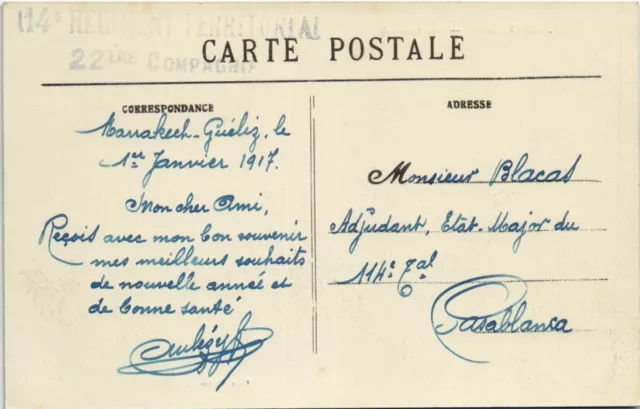 114e REGIMENT TERRITORIAL
22ème COMPAGNIE
CARTE POSTALE
CORRESPONDANCE
Marrakech-Guéliz, le
1er Janvier 1917.
Mon cher Ami,
Reçois avec mon bon souvenir
mes meilleurs souhaits
de nouvelle année et
de bonne santé
ADRESSE
Monsieur Blacas
Adjudant, Etat-Major du
114e Tal
Casablanca